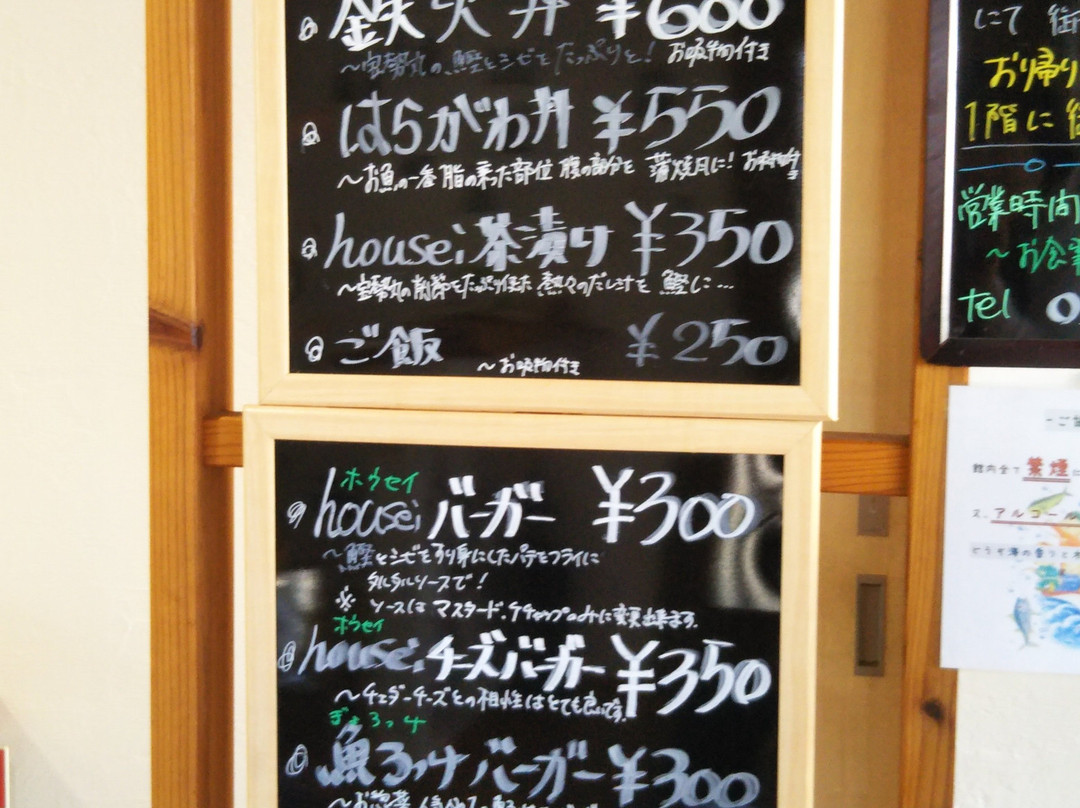 鉄火丼 ¥600
~宝勢丸の、鰹とシビをたっぷりと! お吸物付き
はらがわ丼 ¥550
~お魚の一番脂の乗った部位 腹の部分を 蒲焼風に! お吸物付
housei茶漬け ¥350
~宝勢丸の削節をたっぷり使た 熱々のだしけを 鰹に…
ご飯 ¥250
~お吸物付き
ホウセイ
houseiバーガー ¥300
~鰹とシビをすり身にしたパテをフライに
タルタルソースで!
※ ソースは マスタード、ケチャップのみに変更出来ます。
ホウセイ
houseiチーズバーガー ¥350
~チェダーチーズとの相性はとても良いです。
ぎょろっけ
魚ろっけバーガー ¥300
~お惣菜
にて
お帰り
1階に
営業時間
~お食事
tel 0
館内全て禁煙
又、アルコール
どうぞ海の香りと